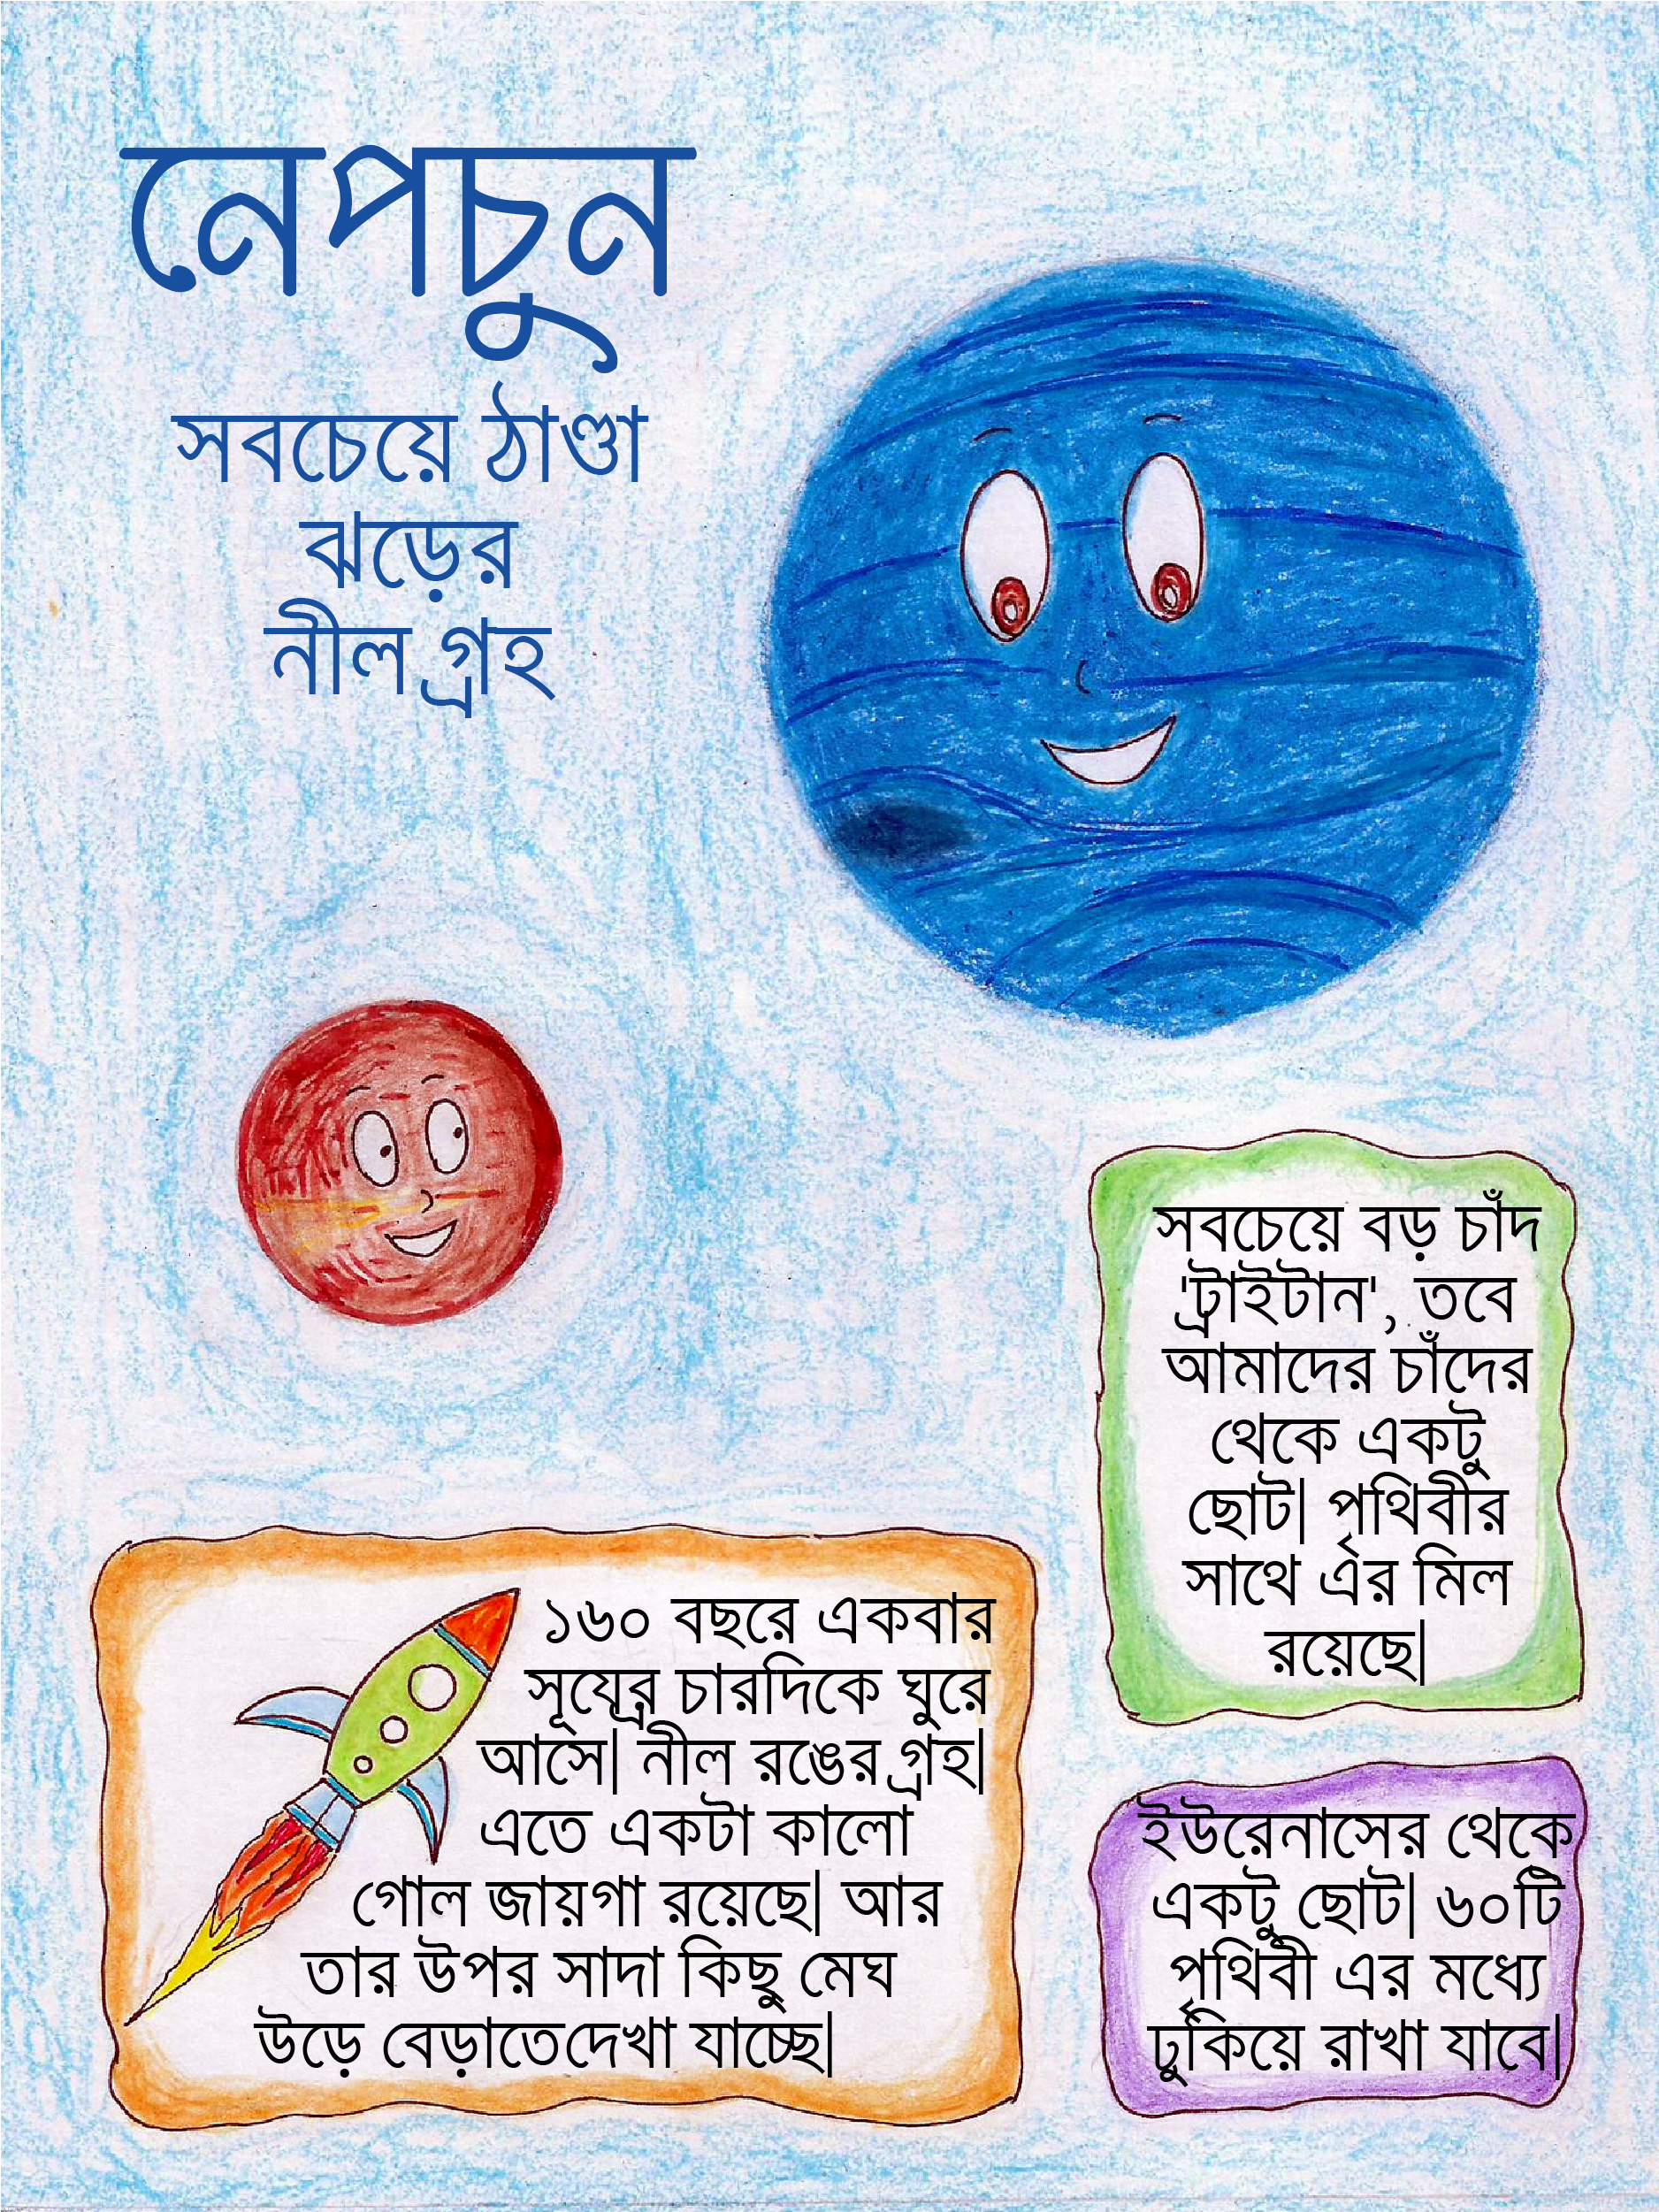 নেপচুন
সবচেয়ে ঠাণ্ডা
ঝড়ের
নীল গ্রহ
সবচেয়ে বড় চাঁদ
'ট্রাইটান', তবে
আমাদের চাঁদের
থেকে একটু
ছোট| পৃথিবীর
সাথে এর মিল
রয়েছে|
১৬০ বছরে একবার
সূযের্র চারদিকে ঘুরে
আসে| নীল রঙের গ্রহ|
এতে একটা কালো
গোল জায়গা রয়েছে| আর
তার উপর সাদা কিছু মেঘ
উড়ে বেড়াতেদেখা যাচ্ছে|
ইউরেনাসের থেকে
একটু ছোট| ৬০টি
পৃথিবী এর মধ্যে
ঢুকিয়ে রাখা যাবে|